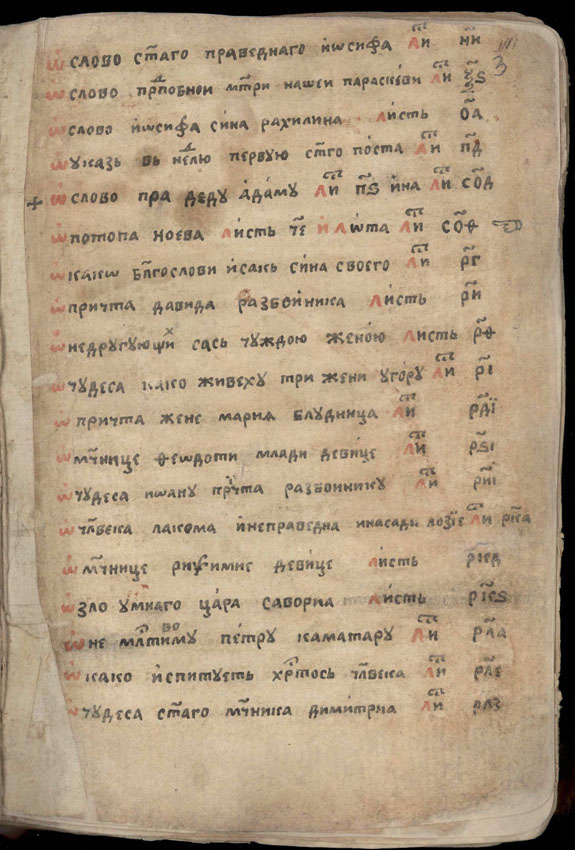 ѡ слово ст҃аго праведнаго иѡсифа ли н҃и
3
ѡ слово прⷣпобнои мт҃ри нашеи параскеви ли ч҃ѕ
ѡ слово иѡсифа сина рахилина листь о҃а
ѡ указь вь неⷣлю первую ст҃го поста ли п҃д
+ ѡ слово пра деду адаму ли п҃ѕ ина ли со҃д
ѡ потопа ноева листь ч҃е и лѡта ли со҃ѳ
ѡ какѡ бл҃гослови исакь сина своего ли р҃г
ѡ причта давида разбоиника листь р҃и
ѡ недругующиⷯ сась туждою женою листь р҃ѳ
ѡ чудеса како живеху три жени угору ли р҃і
ѡ причта жене мариꙗ блудница ли рд҃ї
ѡ мч҃нице ѳеѡдоти млади девице ли рѕ҃і
ѡ чудеса иѡану прч҃та разбоинику ли ри҃і
ѡ чл҃века лакома инеправедна инасади лозїе ли рк҃а
ѡ мч҃нице ришимие девице листь рк҃д
ѡ зло умнаго цара савориа листь рк҃ѕ
ѡ не млⷭ҇тимⷡ҇ому петру каматару ли рл҃а
ѡ како испитуеть хрⷭ҇тось чл҃века ли рл҃е
ѡ чудеса ст҃аго мч҃ника димитриа ли рл҃з